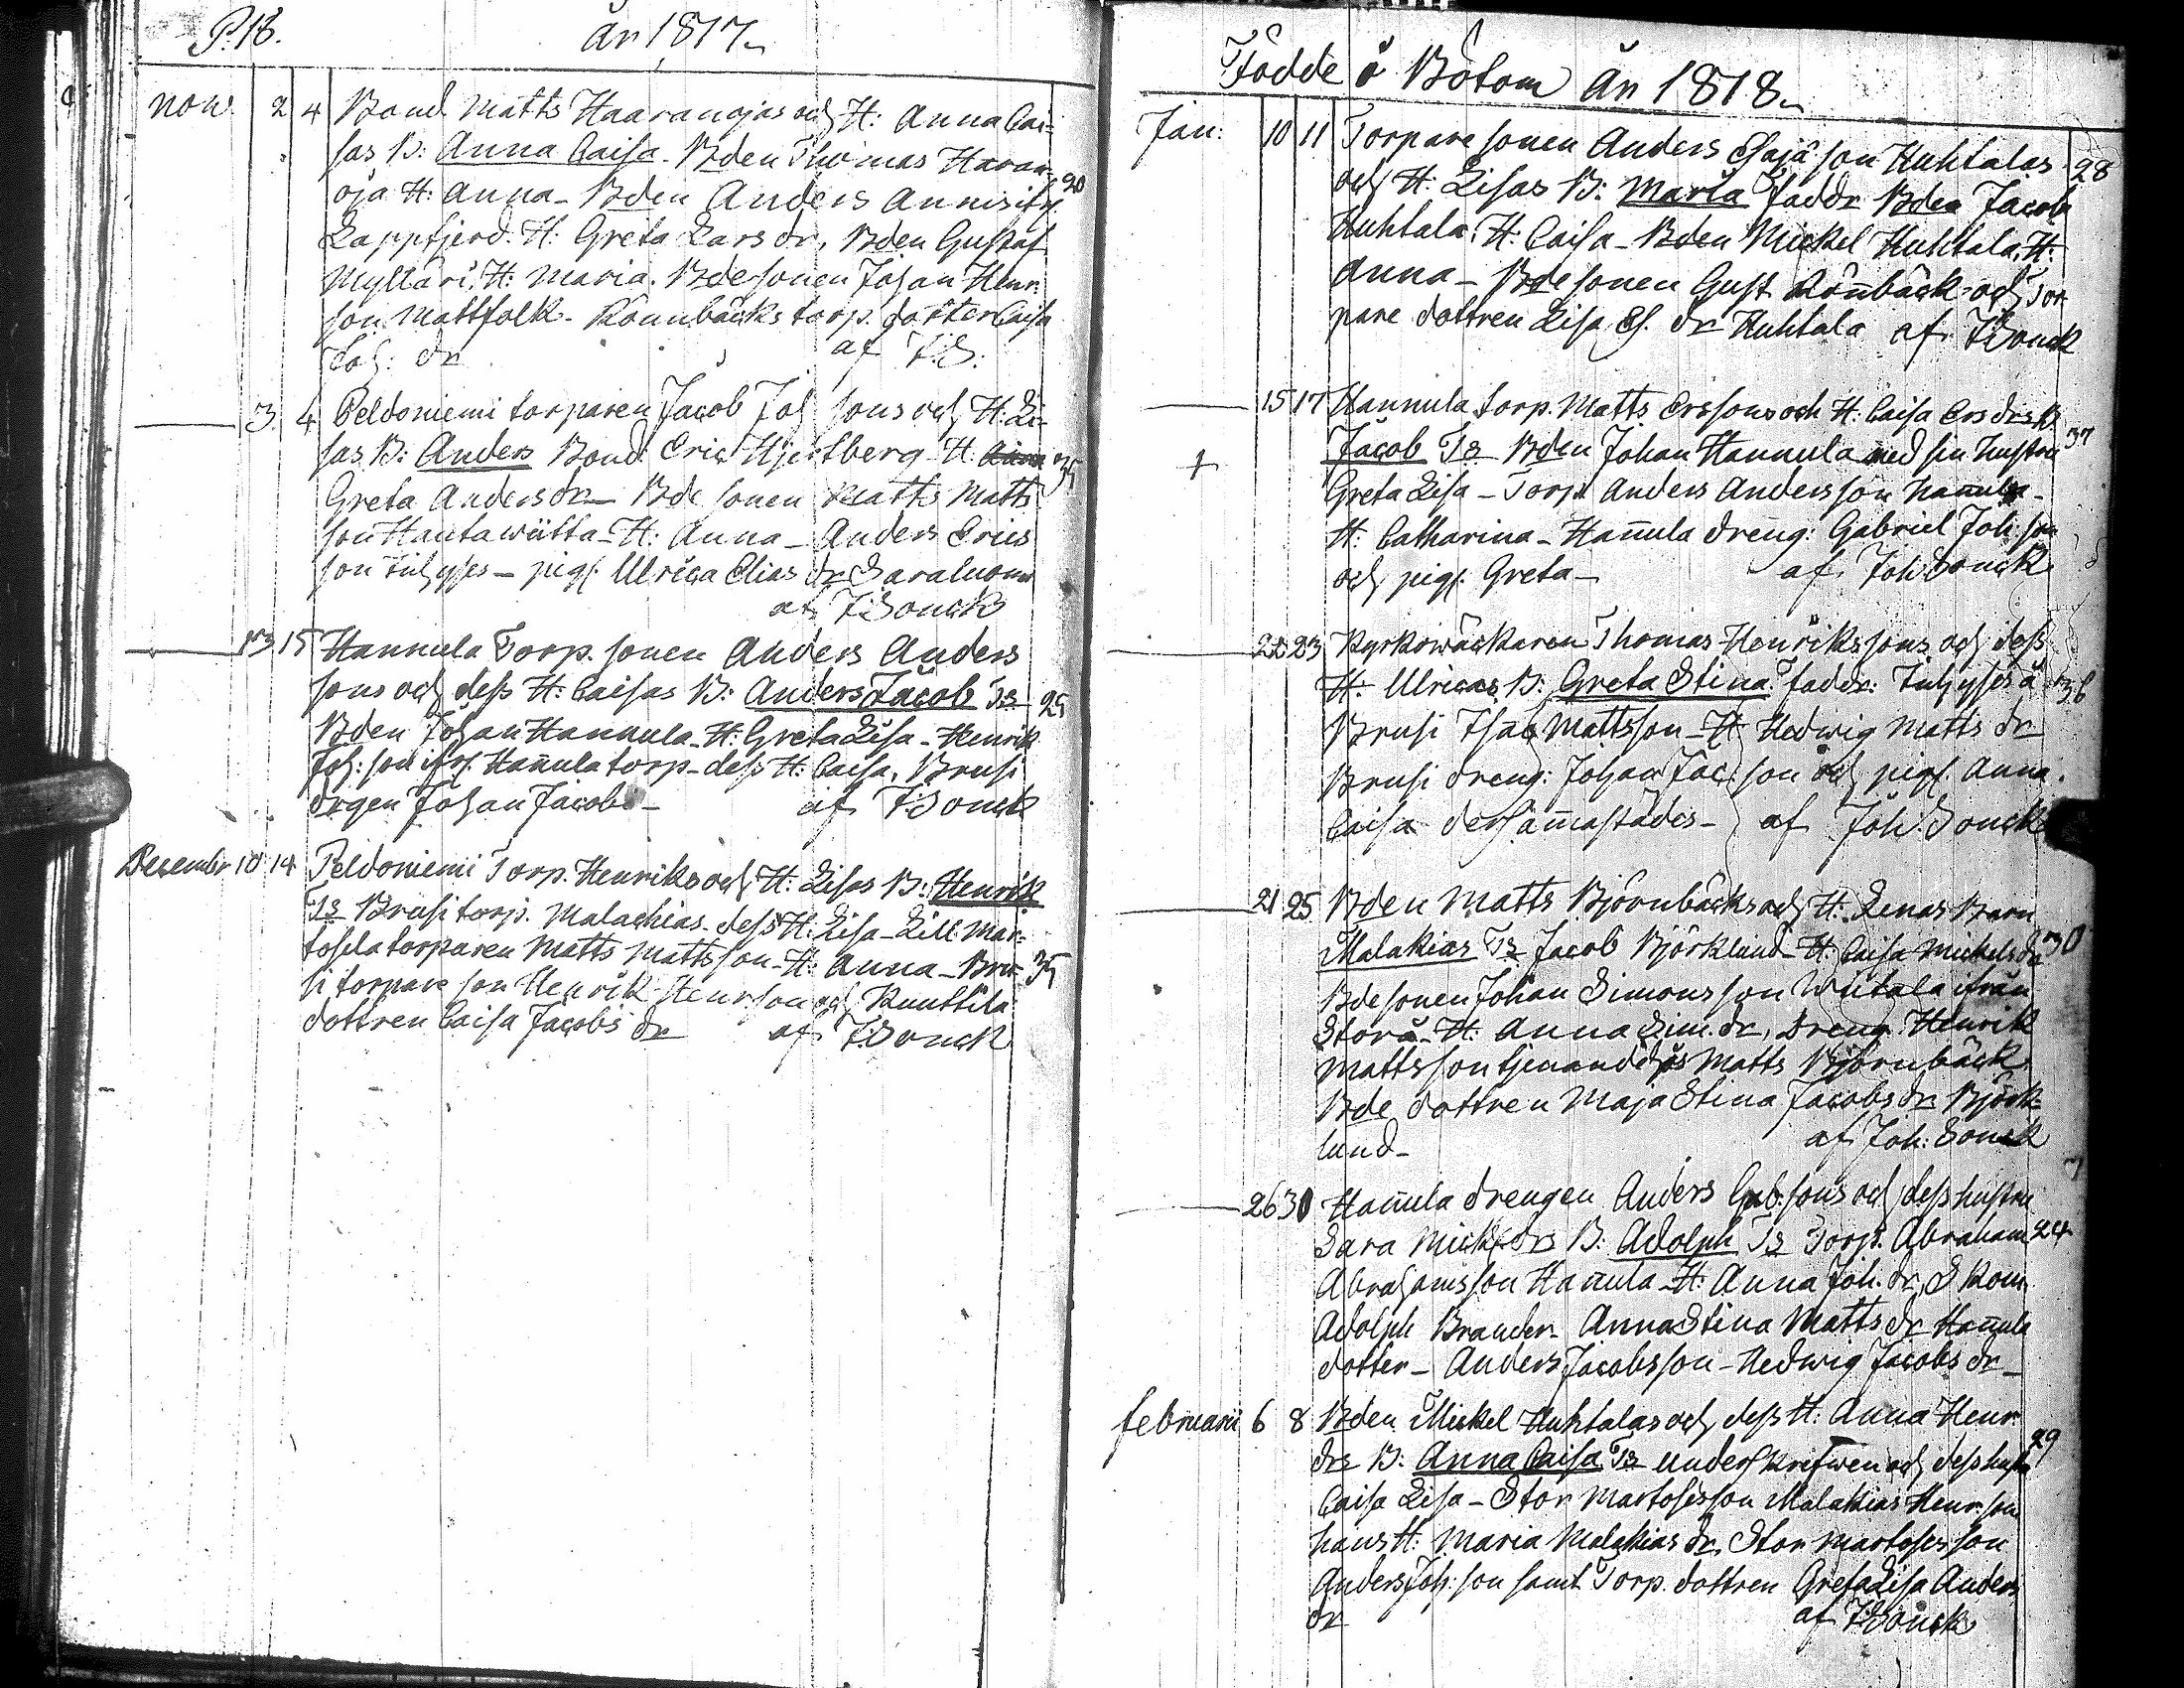 P. 18. År 1817
Nov. 2 4 Bond. Matts Haaranojas och H: Anna Cai-
sas B: Anna Caisa. Bden Thomas Haran-
oja H: Anna - Bden Anders
Lappfjerd. H: Greta Lars dr, Bden Gustaf
Mylläri, H: Maria. Bdesonen Johan Henr.
son Mattfolk - Rönnbäcks torp. dotter Caisa
Joh: dr af J.S.
20
3 4 Peldoniemi torparen Jacob Joh sons och H: Li-
sas B: Anders Bond. Eric Hjertberg H:
Greta Anders dr - Bde sonen Matts Matts
son Hautawiitta - H: Anna - Anders Erics
son Inhyses - pig. Ulrica Elias dr Saraluoma
af J Sonck
35
13 15 Hannula Torp. sonen Anders Anders
sons och dess H: Caisas B: Anders Jacob Ts
Bden Johan Hannula - H: Greta Lisa - Henrik
Joh: son ifr. Han̄ula torp - dess H: Caisa, Brusi
drgen Johan Jacobs - af J Sonck
25
December 10 14 Peldoniemi Torp. Henriks och H: Lisas B: Henrik
Ts Brusi torp. Malachias - dess H: Lisa - Lill Mar-
tosela torparen Matts Mattsson - H: Anna - Bru-
si torpare son Henrik Henrson och Kunttila
dottren Caisa Jacobs dr af J Sonck
35
Födde i Bötom År 1818
Jan: 10 11 Torpare sonen Anders Esajæ son Huhtalas
och H: Lisas B: Maria faddr Bden Jacob
Huhtala, H: Caisa - Bden Mickel Huhtala, H:
Anna - Bde sonen Gust. Rön̄bäck och Tor-
pare dottren Lisa Es. dr Huhtala af J Sonck
28
15 17 Hannula torp. Matts Ers sons och H. Caisa Ers drs B.
Jacob Ts Bden Johan Hannula med sin hustru
Greta Lisa - Torp. Anders Andersson Han̄ula -
H: Catharina - Han̄ula dreng: Gabriel Joh: son
och pig. Greta - af Joh Sonck
37
+
22 23 Kyrkowäckaren Thomas Henrikssons och dess
H: Ulricas B: Greta Stina faddr: Inhyses å
Brusi Isac Mattsson - H: Hedwig Matts dr
Brusi dreng: Johan Jac: son och pig. Anna
Caisa dersam̄astädes - af Joh. Sonck
36
21 25 Bden Matts Björnbäcks och H: Lenas Barn
Malakias Ts Jacob Björklund - H: Caisa Mickels dr
Bdesonen Johan Simonsson Wiitala ifrån
Storå - H: Anna Sim. dr, Dreng. Henrik
Mattsson tjenande hos Matts Björnbäck
Bde dottren Maja Stina Jacobs dr Björk-
lund - af Joh: Sonck
30
26 30 Han̄ula drengen Anders Gab: sons och dess hustru
Sara Mick: drs B: Adolph Ts Torp. Abraham
Abrahamsson Han̄ula - H: Anna Joh. dr, Skom.
Adolph Brander - Anna Stina Matts dr Han̄ula
dotter - Anders Jacobsson - Hedwig Jacobs dr -
24
februarii 6 8 Bden Mickel Huhtalas och dess H: Anna Henr.
drs B: Anna Caisa Ts Underskrifwen och dess hustr
Caisa Lisa - Stor Martoses son Malakias Henr. son
hans H: Maria Malakias dr. Stor Martoses son
Anders Joh: son samt Torp. dottren Greta Lisa Anders
dr af J Sonck
29